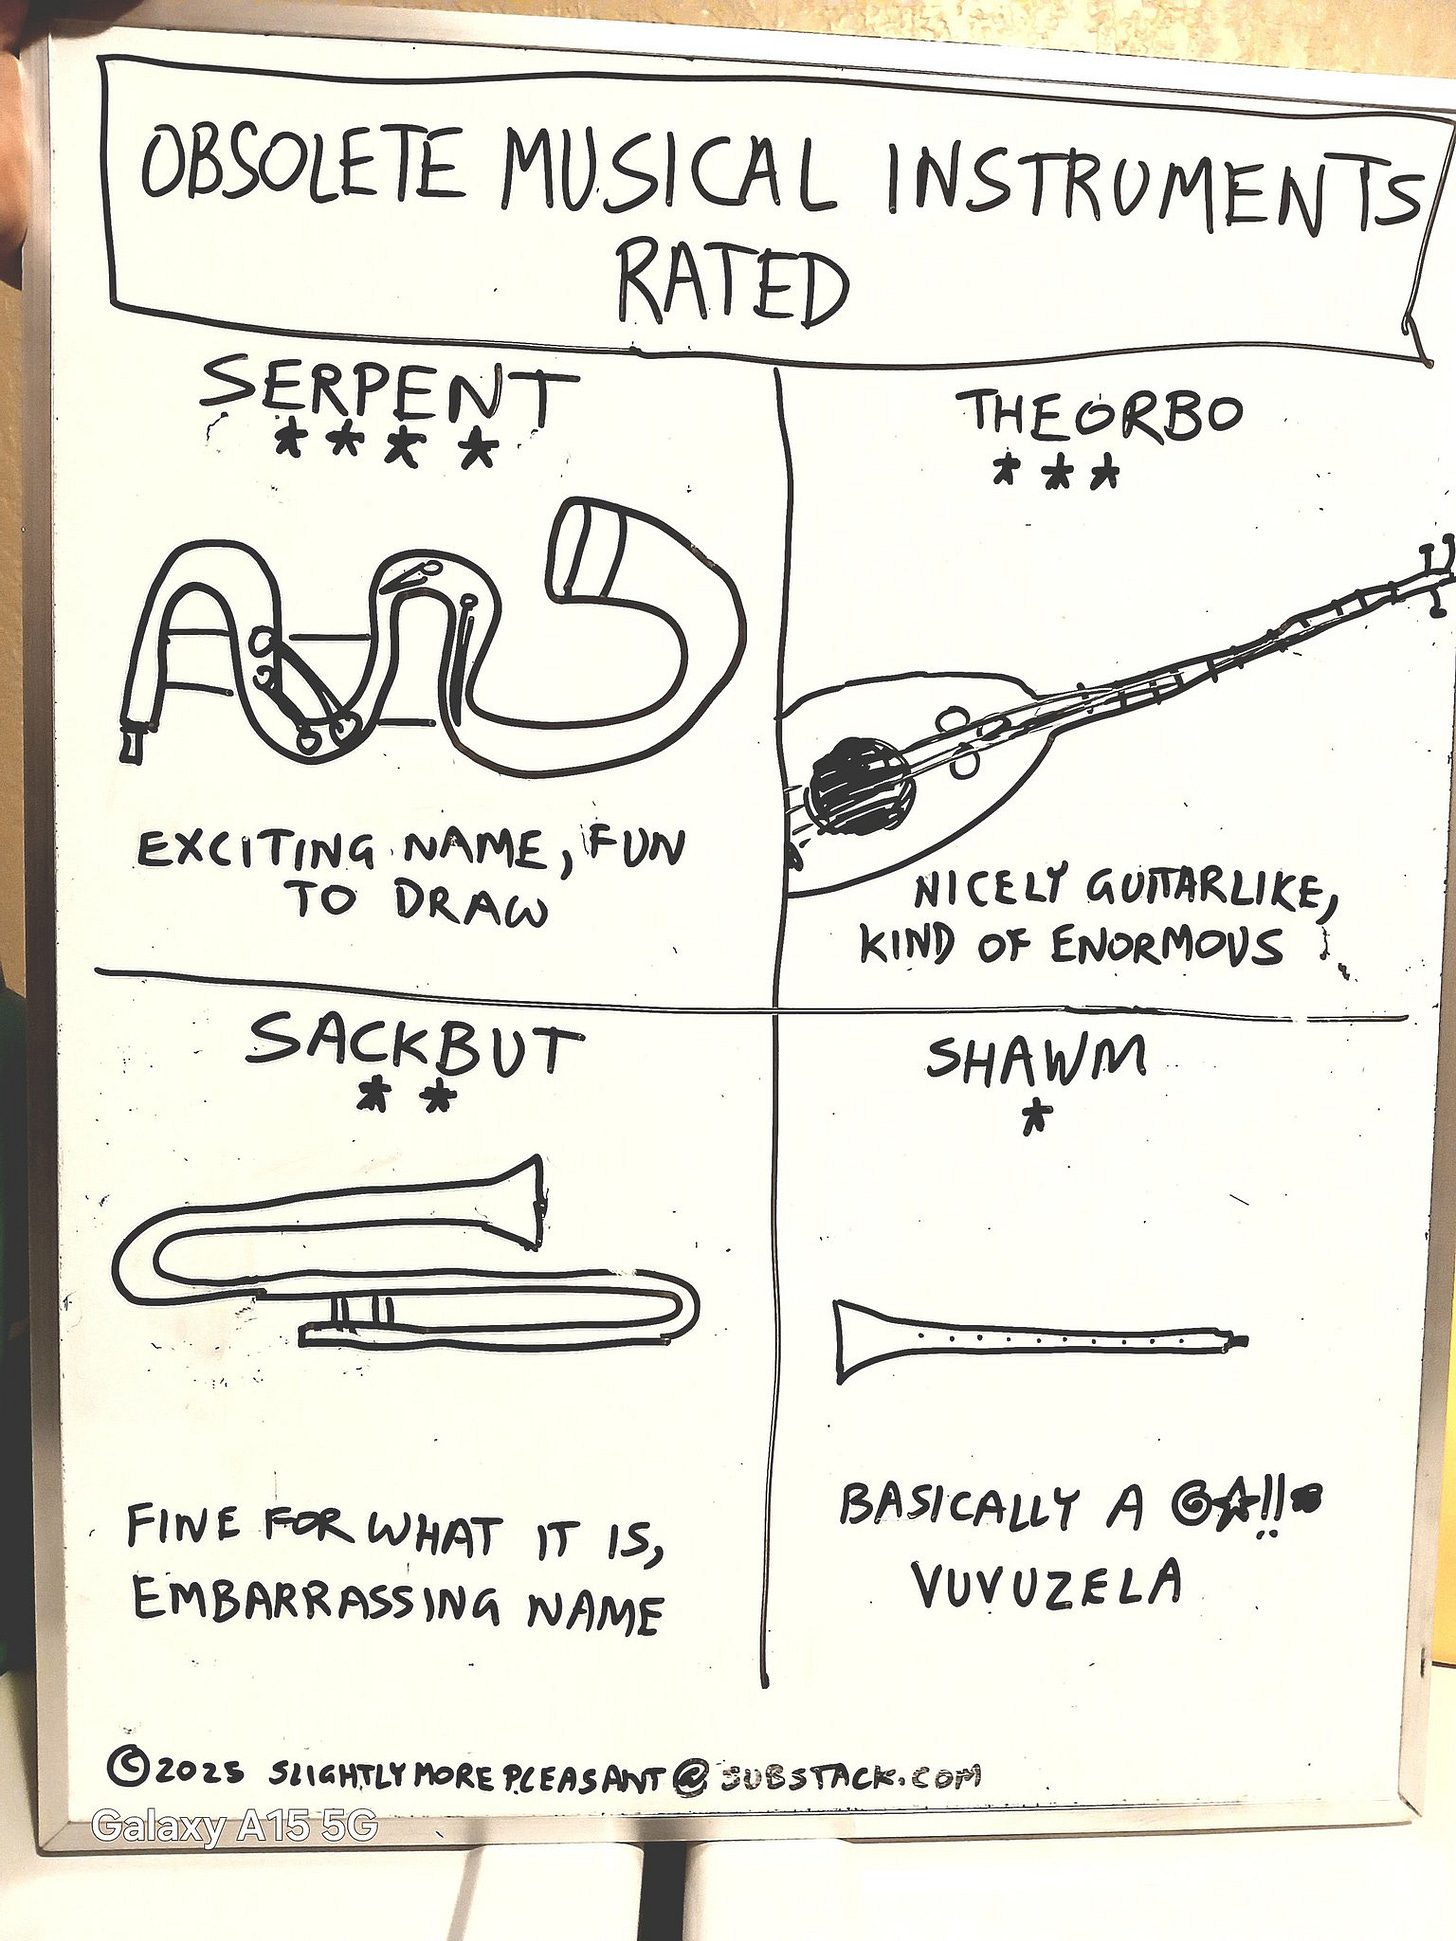 OBSOLETE MUSICAL INSTRUMENTS
RATED
SERPENT
****
EXCITING NAME, FUN
TO DRAW
THEORBO
***
NICELY GUITARLIKE,
KIND OF ENORMOUS
SACKBUT
**
FINE FOR WHAT IT IS,
EMBARRASSING NAME
SHAWM
*
BASICALLY A @☆!!*
VUVUZELA
©2025 SLIGHTLYMOREPLEASANT@SUBSTACK.COM
Galaxy A15 5G